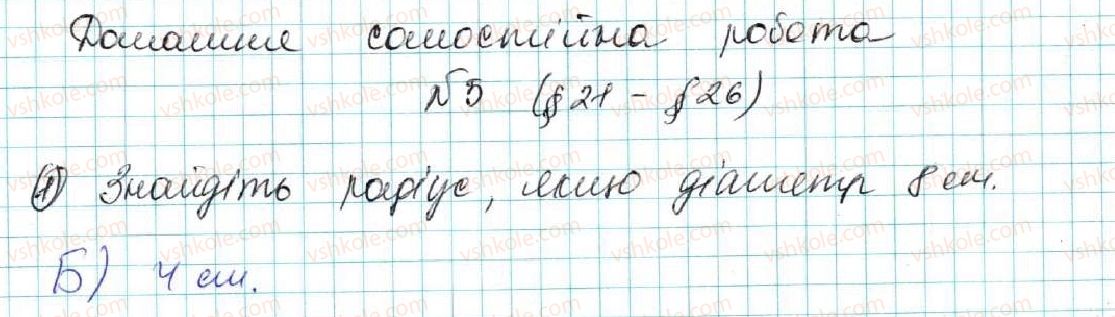 Домашня самостійна робота
№5 (§21 - §26)
1) Знайдіть радіус, якщо діаметр 8 см.
Б) 4 см.